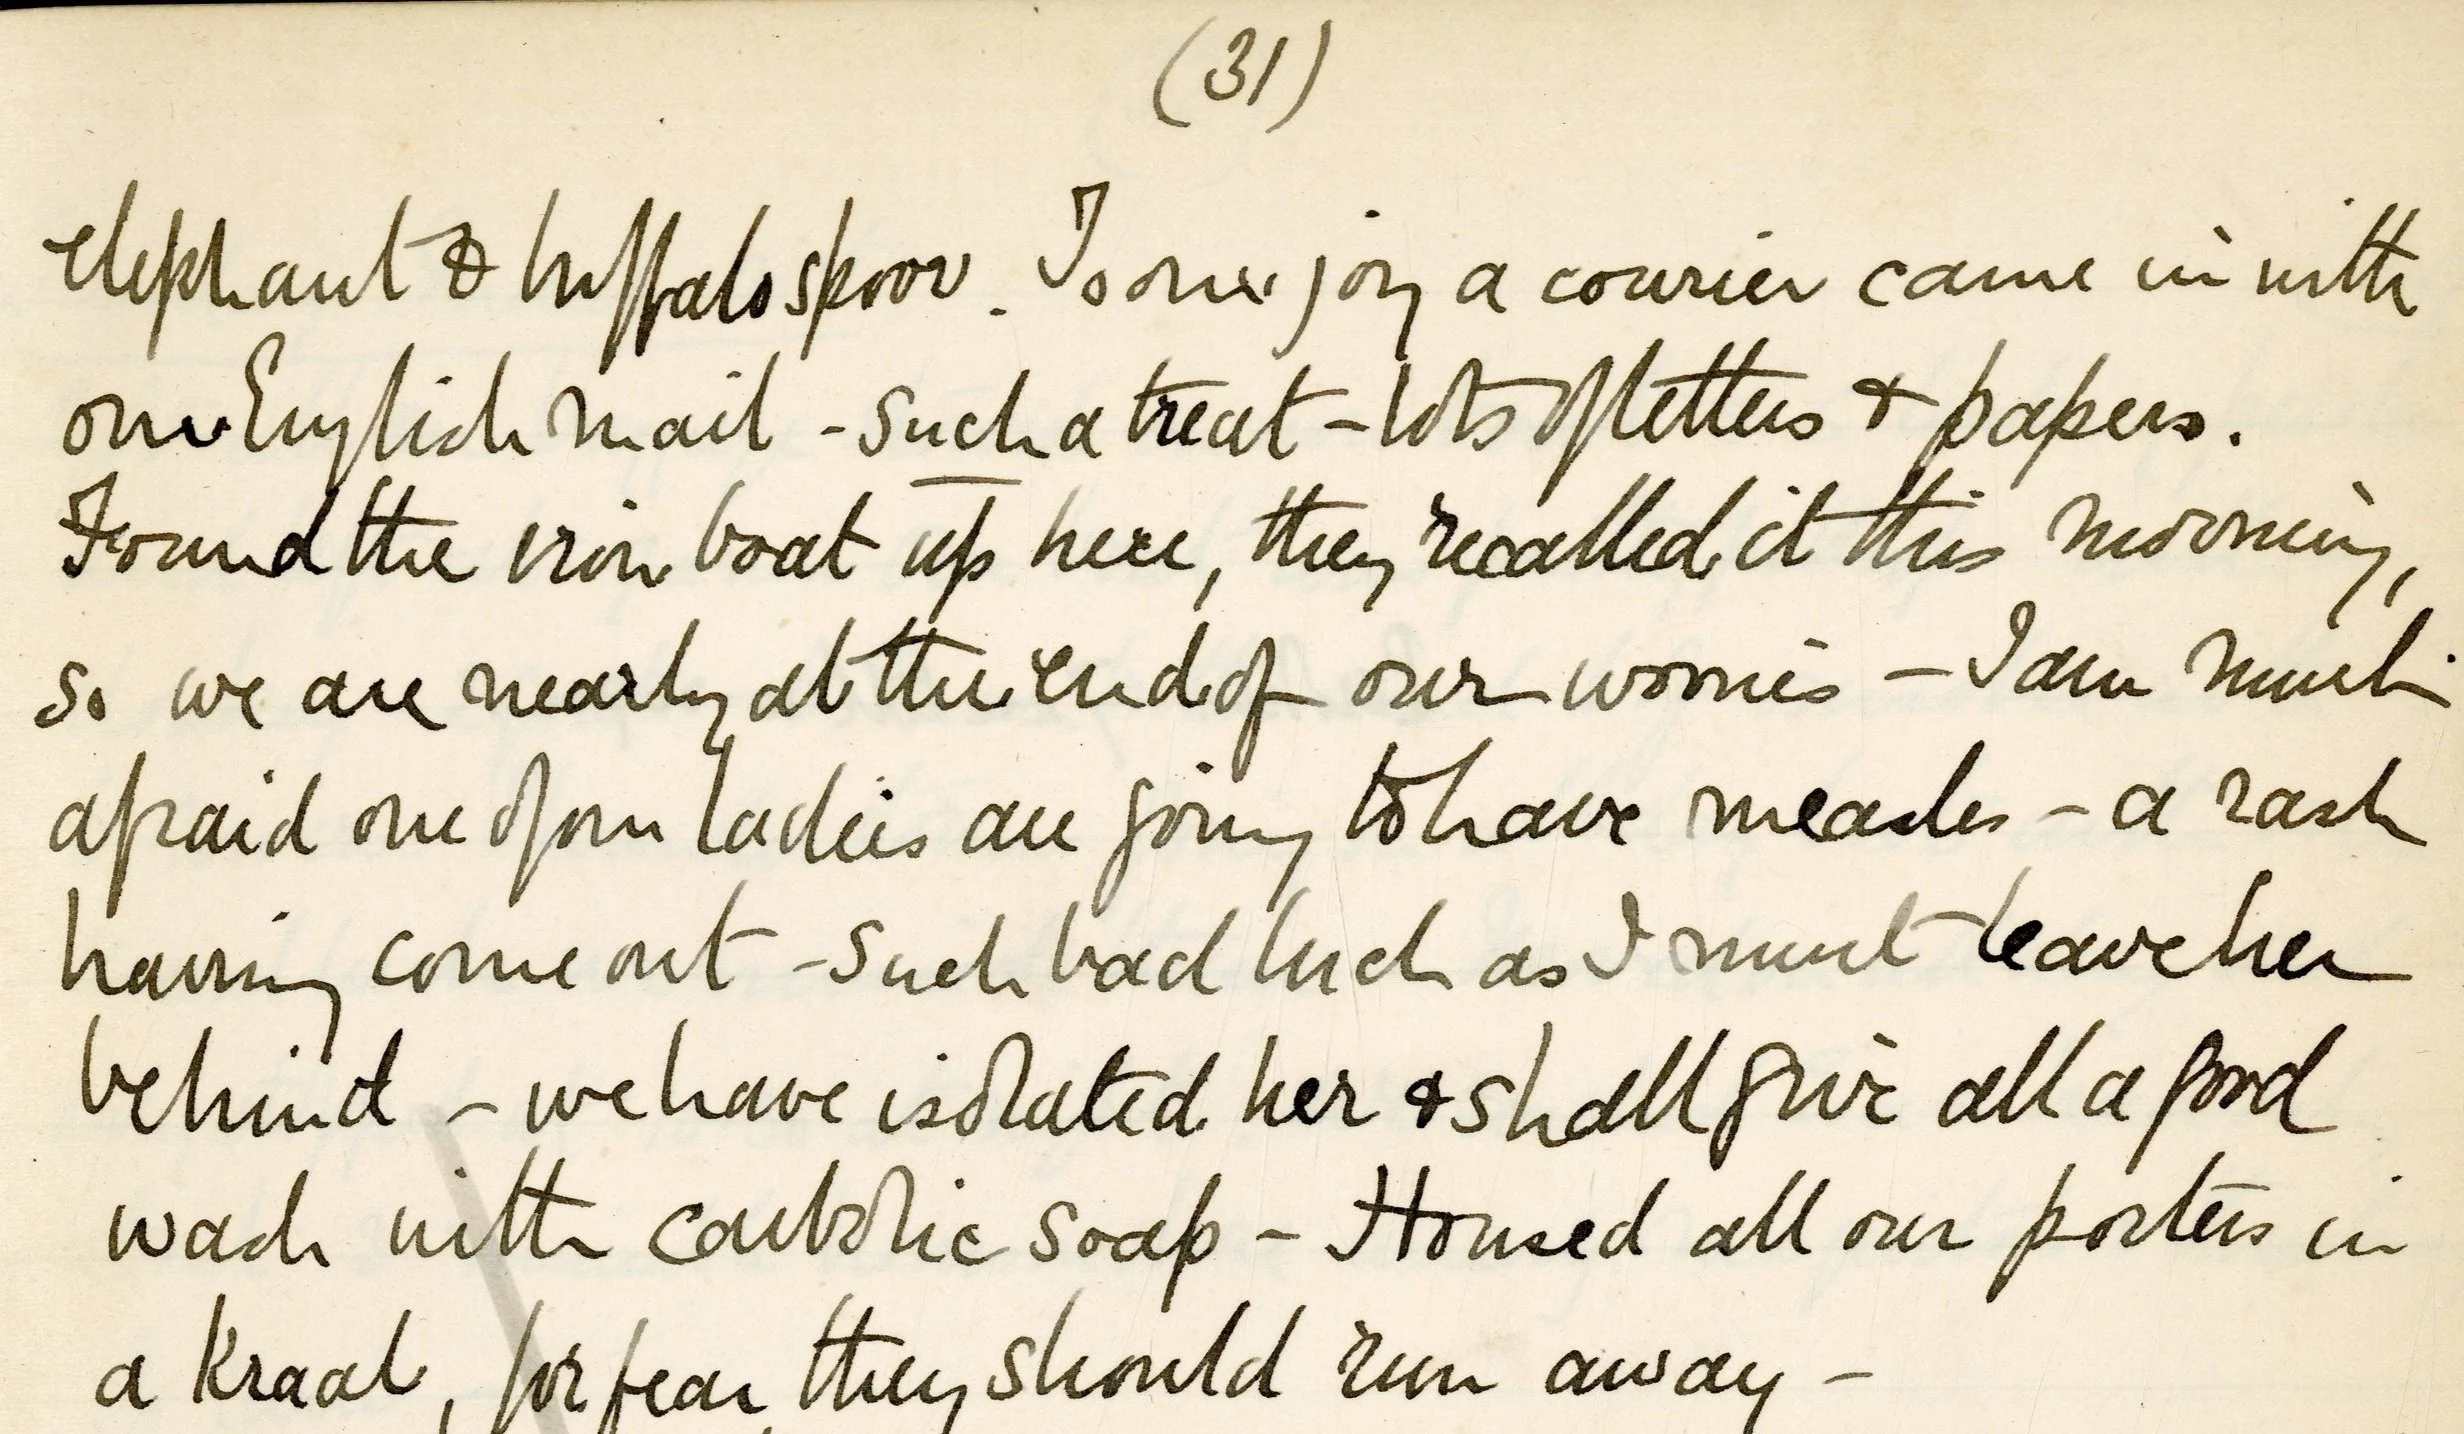 (31)
elephant & buffalo spoor. To our joy a courier came in with
our English mail - such a treat - lots of letters & papers.
Found the iron boat up here, they recalled it this morning,
so we are nearly at the end of our worries - I am much
afraid one of our ladies are going to have measles - a rash
having come out - such bad luck as I must leave her
behind - we have isolated her & shall give all a good
wash with carbolic soap - Housed all our porters in
a Kraal, for fear they should run away -